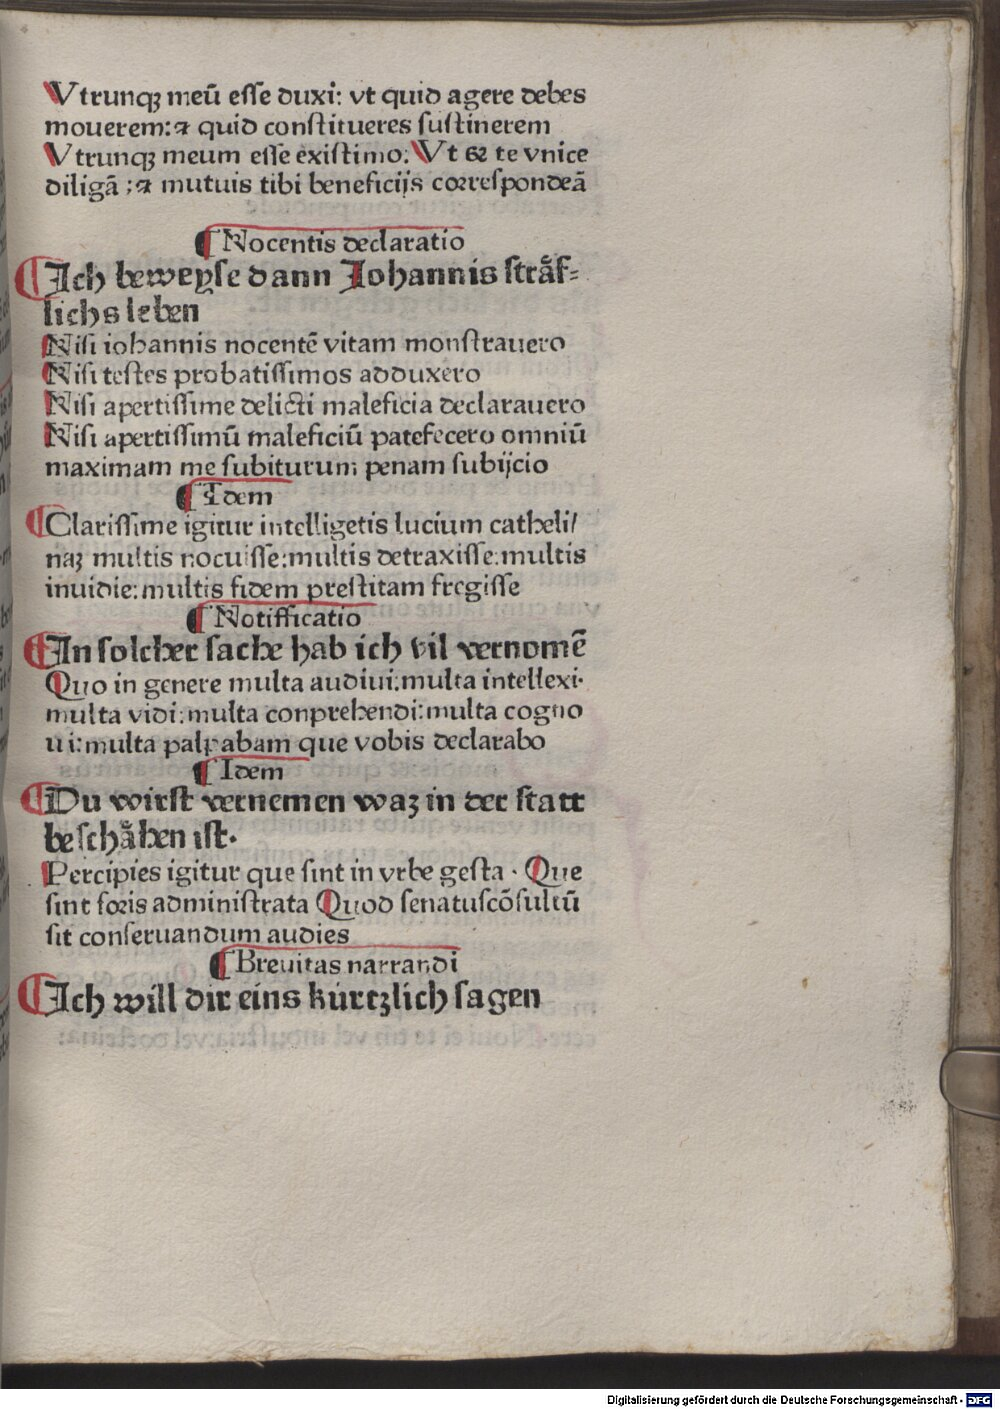 Vtrunqꝫ meū eſſe duxi: vt quid agere debes
mouerem: ⁊ quid conſtitueres ſuſtinerem
Vtrunqꝫ meum eſſe exiſtimo: Vt & te vnice
diligā : ⁊ mutuis tibi beneficijs correſpondeā
¶ Nocentis declaratio
¶ Ich beweyſe dann Johannis ſtraͤf⸗
lichs leben
Niſi iohannis nocentē vitam monſtrauero
Niſi teſtes probatiſſimos adduxero
Niſi apertiſſime delicti maleficia declarauero
Niſi apertiſſimū maleficiū patefecero omniū
maximam me ſubiturum penam ſubijcio
¶ Idem
¶ Clariſſime igitur intelligetis lucium catheli/
naꝫ multis nocuiſſe: multis detraxiſſe: multis
inuidie: multis fidem preſtitam fregiſſe
¶ Notifficatio
¶ In ſolcher ſache hab ich vil vernomē
Quo in genere multa audiui: multa intellexi·
multa vidi: multa conprehendi: multa cogno
ui: multa palpabam que vobis declarabo
¶ Idem
¶ Du wirſt vernemen waꝫ in der ſtatt
beſchaͤhen iſt·
Percipies igitur que ſint in vrbe geſta · Que
ſint foris adminiſtrata Quod ſenatuſcōſultū
ſit conſeruandum audies
¶ Breuitas narrandi
¶ Ich will dir eins kurtzlich ſagen
Digitalisierung gefördert durch die Deutsche Forschungsgemeinschaft - DFG